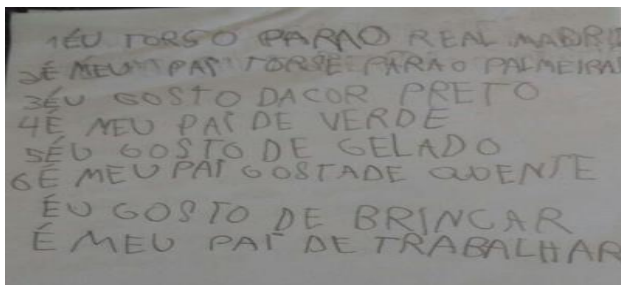 1ÉU TORSO PARAO REAL MADRI
2É MEU PAI TORSE PARAO PALMEIRA
3ÉU GOSTO DACOR PRETO
4É MEU PAI DE VERDE
5ÉU GOSTO DE GELADO
6É MEU PAI GOSTADE QUENTE
ÉU GOSTO DE BRINCAR
É MEU PAI DE TRABALHAR